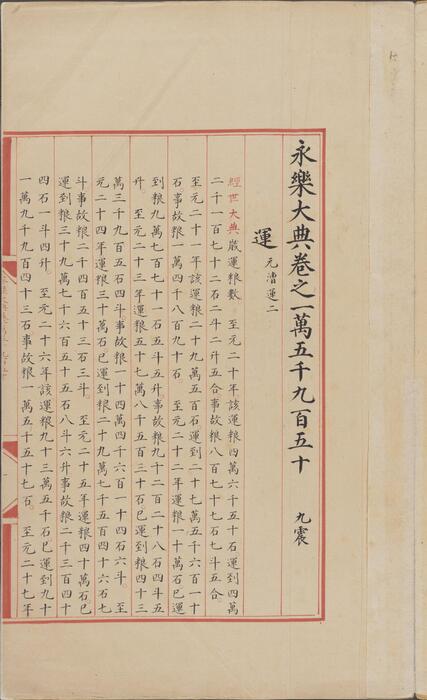 永樂大典卷之一萬五千九百五十 九震
運 元漕運二
經世大典歲運粮數 至元二十年該運粮四萬六千五十石運到四萬
二千一百七十二石二斗二升五合事故粮八百七十七石七斗五合
至元二十一年該運粮二十九萬五百石運到二十七萬五千六百一十
石事故粮一萬四千八百九十石 至元二十二年運粮一十萬石已運
到粮九萬七百七十一石五斗五升事故粮九千二百二十八石四斗五
升 至元二十三年運粮五十七萬八千五百三十石已運到粮四十三
萬三千九百五石四斗事故粮一十四萬四千六百一十四石六斗 至
元二十四年運粮三十萬石已運到粮二十九萬七千五百四十六石七
斗事故粮二千四百五十三石三斗 至元二十五年運粮四十萬石已
運到粮三十九萬七千六百五十五石八斗六升事故粮二千三百四十
四石一斗四升 至元二十六年該運粮九十三萬五千石已運到九十
一萬九千九百四十三石事故粮一萬五千五十七石 至元二十七年